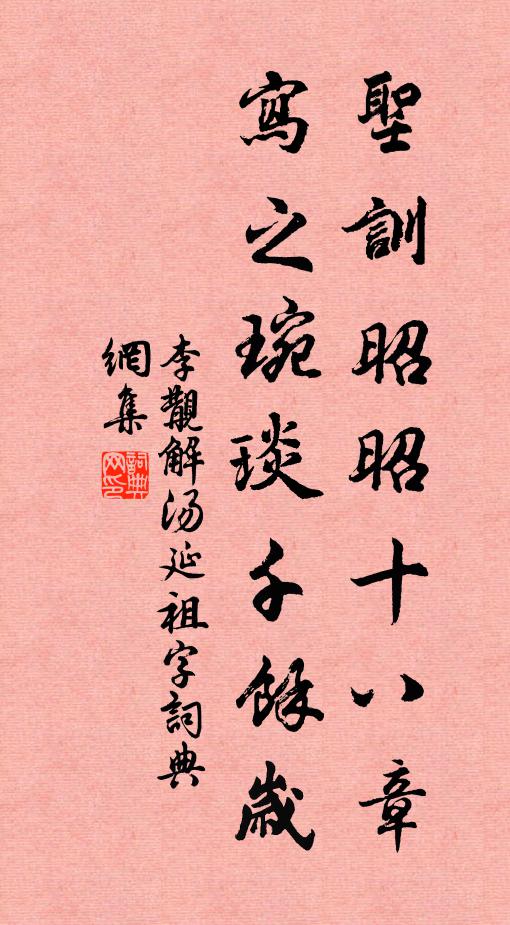 聖訓昭昭十八章
寫之琬琰千餘歲
李觀解汤延祖字詞典
網集
詞典网印